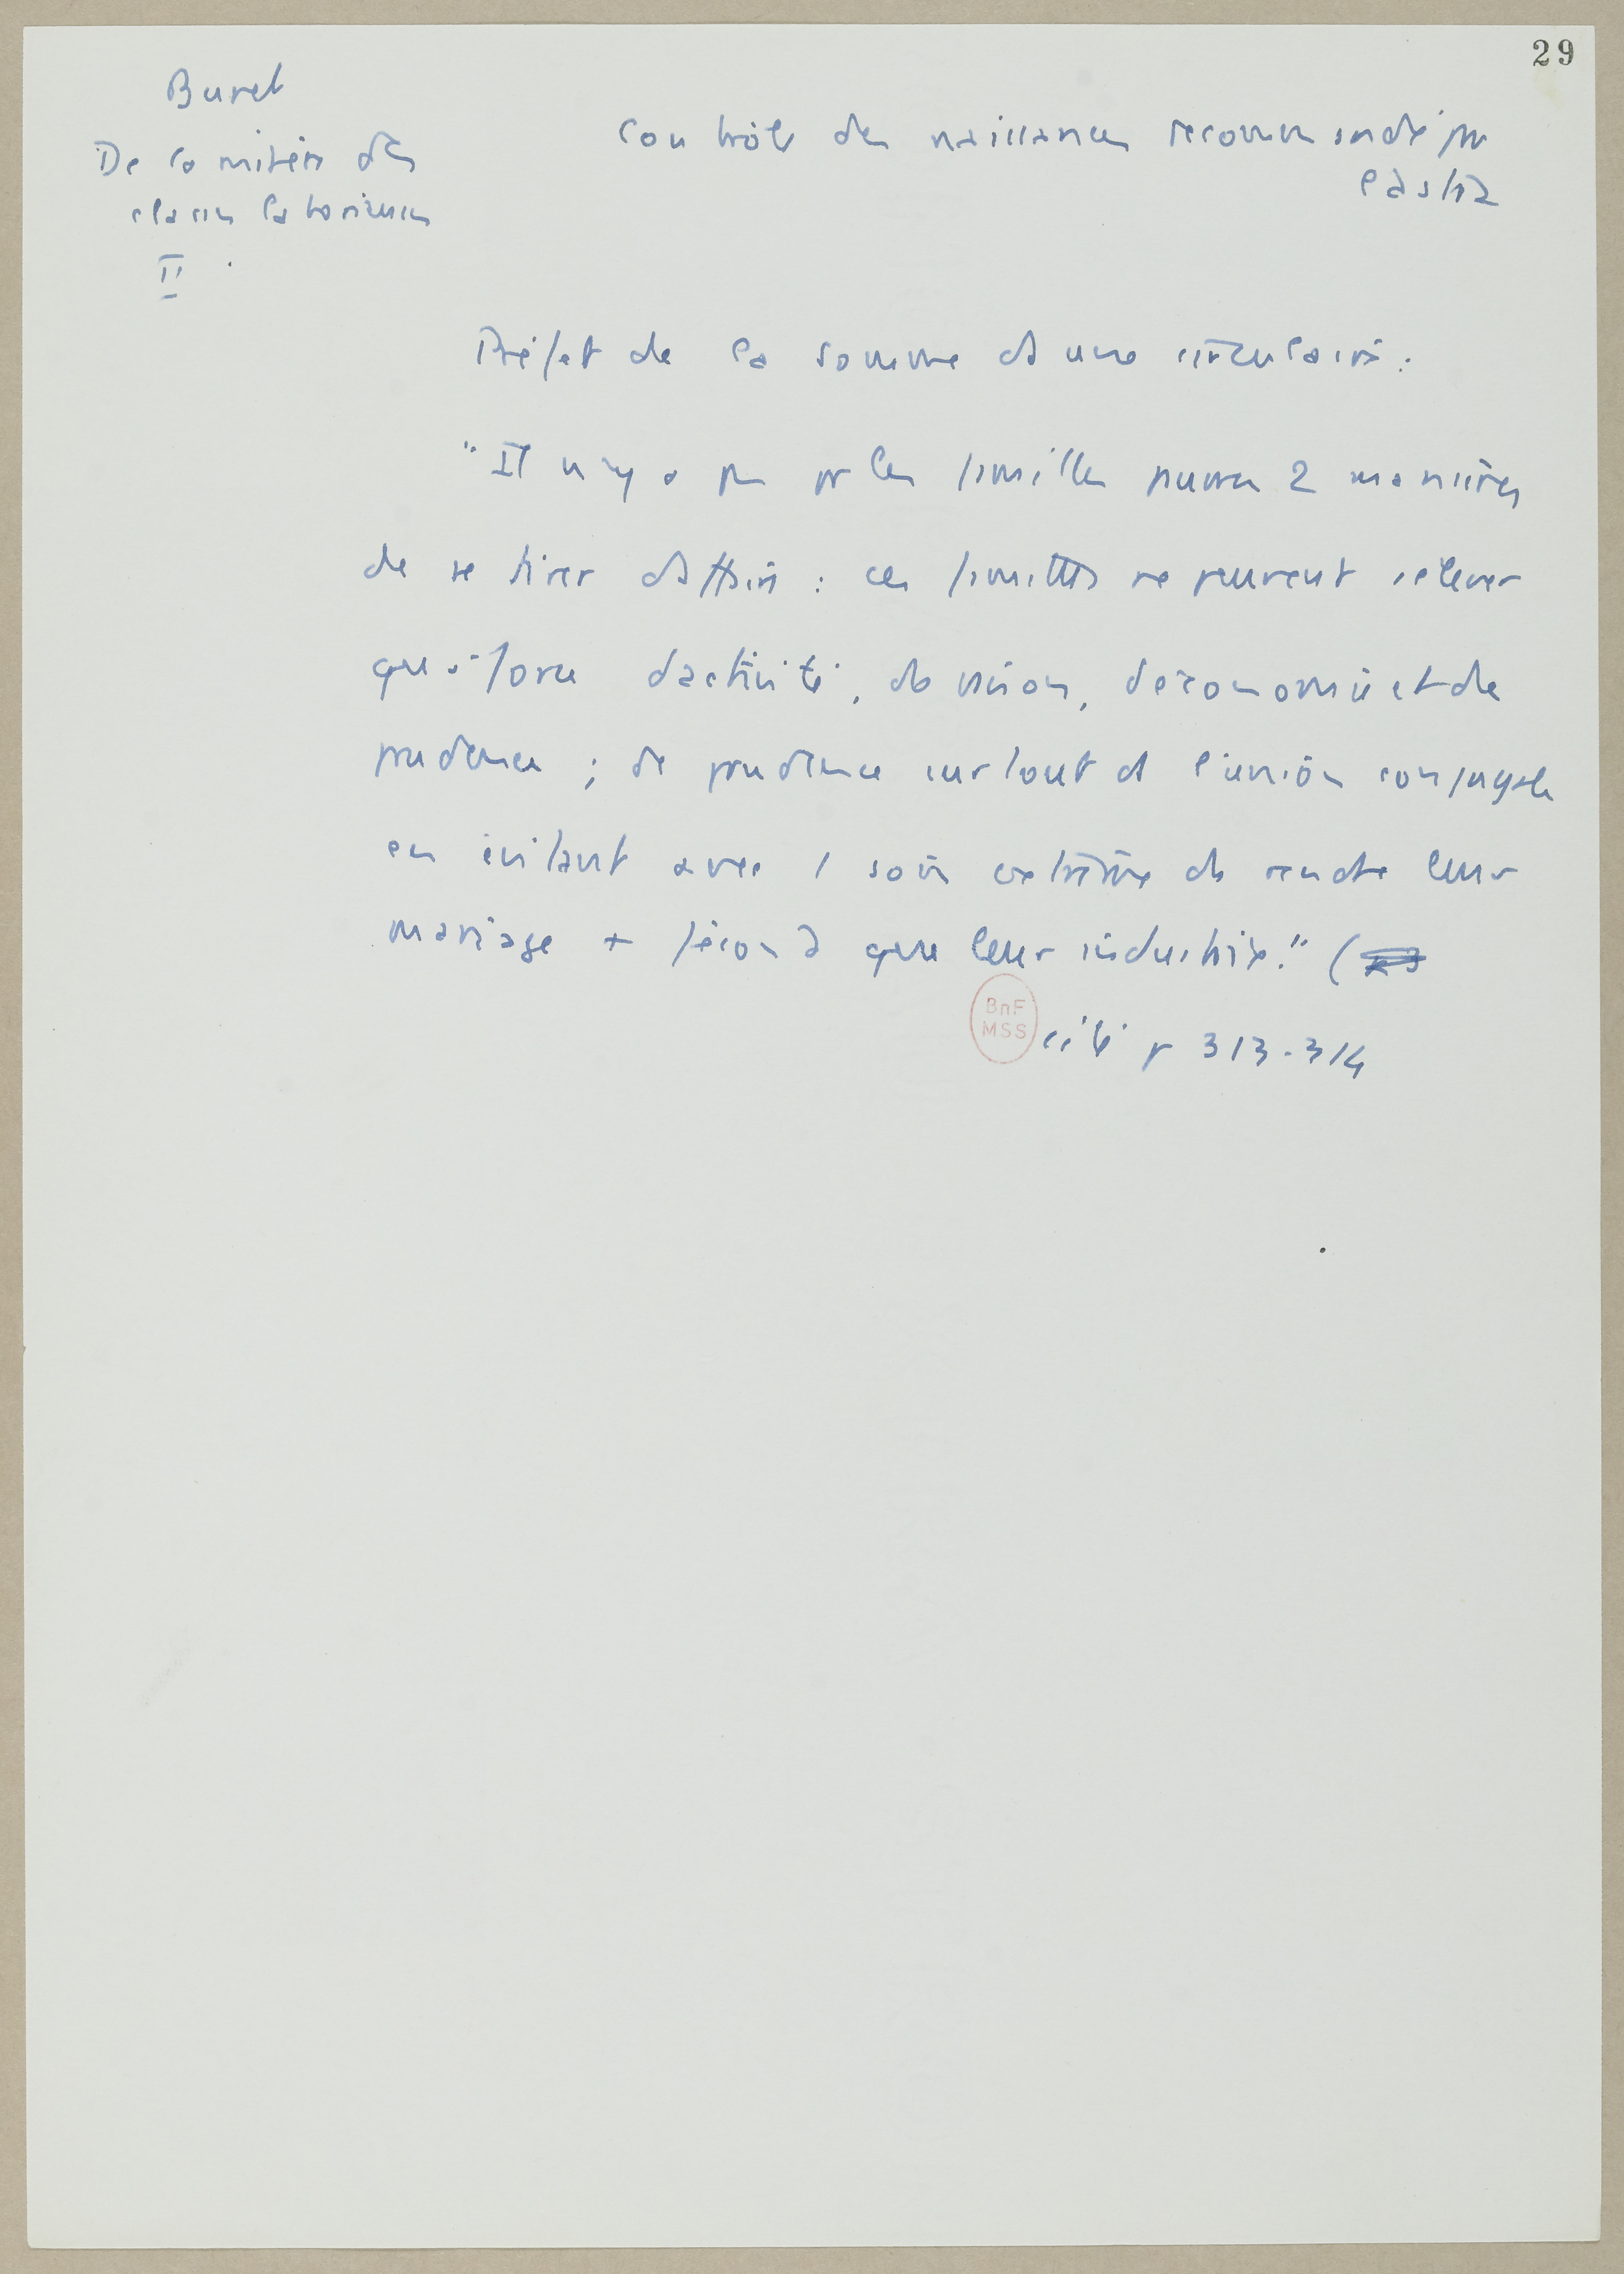 29
Buret
De la misère des
classes laborieuses
II
Contrôle des naissances recommandé par
l'Etat
Préfet de la Somme ds une circulaire :
"Il n'y a pas pr les familles pauvres 2 manières
de se tirer d'affaire : ces familles ne peuvent s'élever
qu'à force d'activité, de raison, d'économie et de
prudence ; de prudence surtout ds l'union conjugale
en évitant avec 1 soin extrême de rendre leur
mariage + fécond que leur industrie." (
BnF
MSS
cité p 313-314